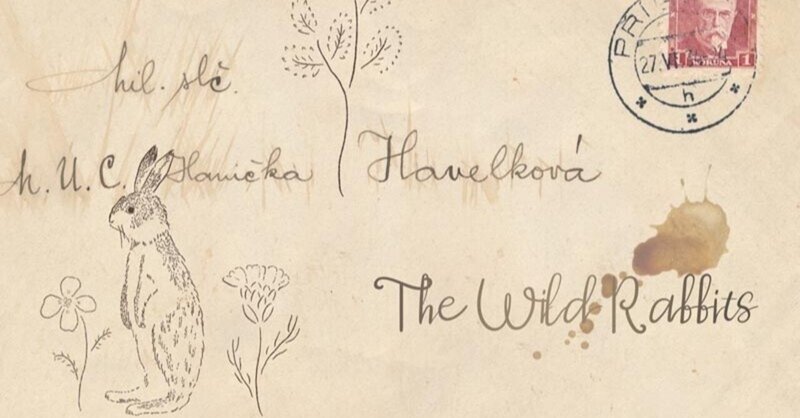 Mil. slč.
M. U. C. Hanička Havelková
The Wild Rabbits
27.VI.
1 KORUNA 1
h